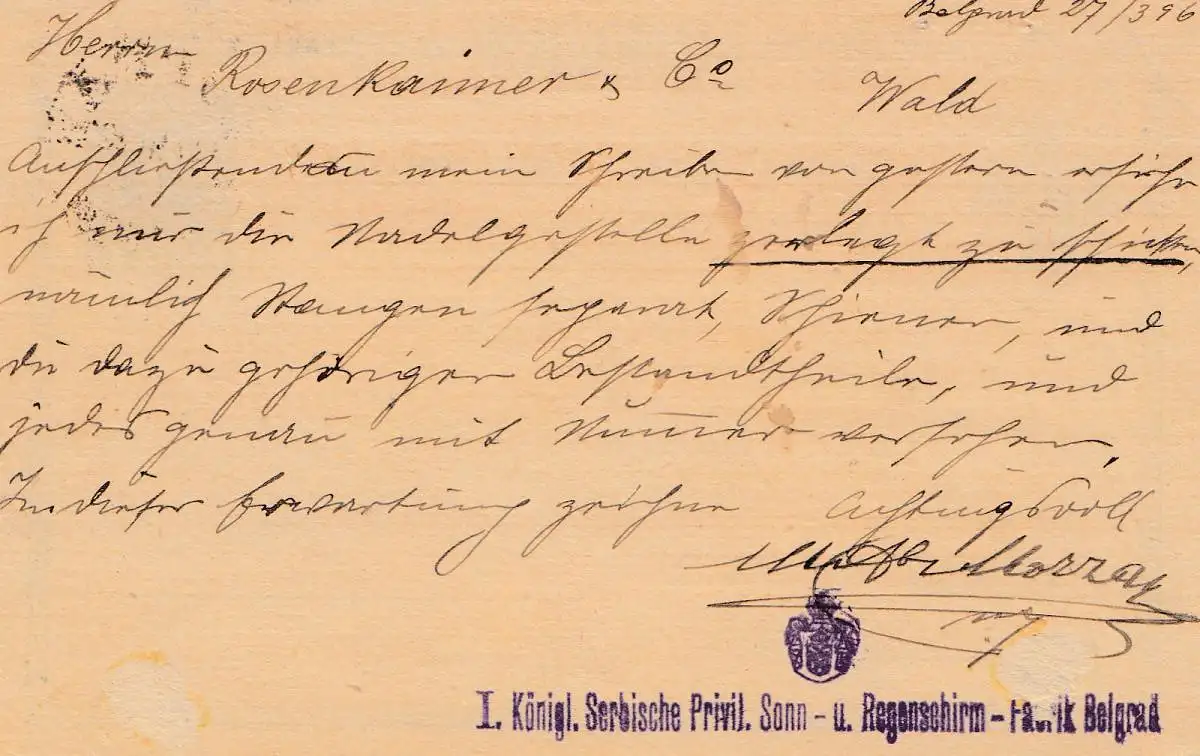 Belgrad 27/3 96
Herrn
Rosenkaimer & Co Wald
Anschliessend an mein Schreiben von gestern ersuche
ich nur die Nadelgestelle zerlegt zu schicken,
nämlich Stangen separat, Schienen, und
die dazu gehörigen Bestandtheile, und
jedes genau mit Nummer versehen.
In dieser Erwartung zeichne Achtungsvoll
I. Königl. Serbische Privil. Sonn- u. Regenschirm-Fabrik Belgrad